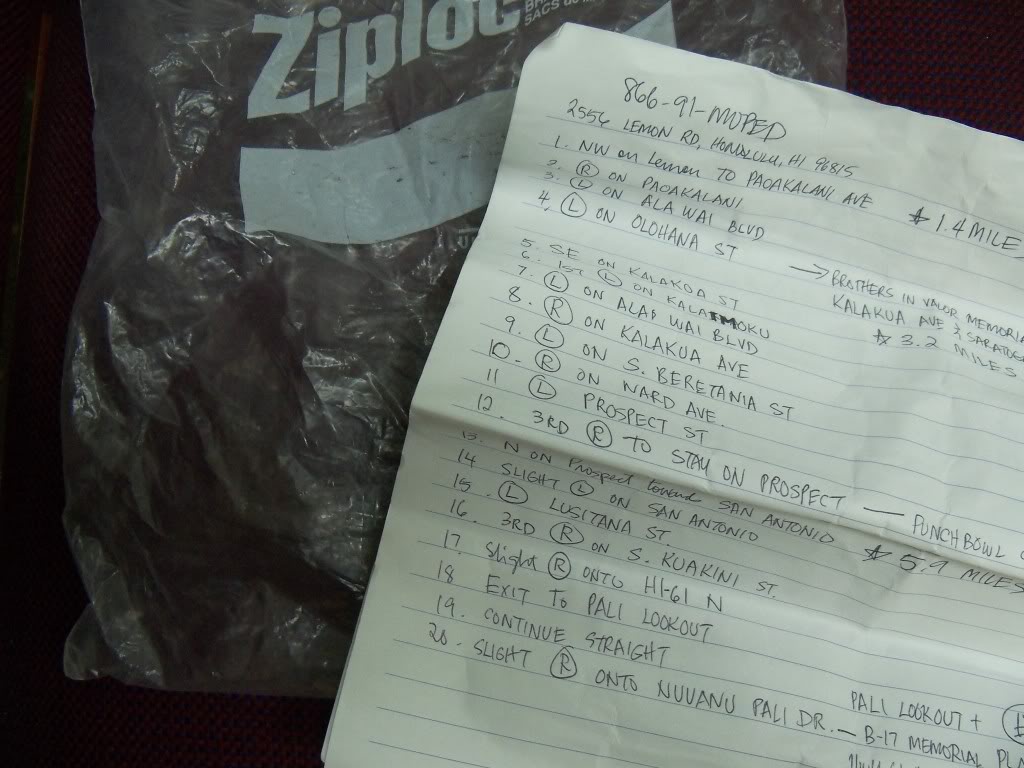 Ziploc
SACS
866-91-MOPED
2556 LEMON RD, HONOLULU, HI 96815
1. NW on Lemon TO PAOAKALANI AVE
2. (R) ON PAOAKALANI
3. (L) ON ALA WAI BLVD
4. (L) ON OLOHANA ST
* 1.4 MILES
5. SE ON KALAKOA ST
→ BROTHERS IN VALOR MEMORIA
KALAKUA AVE & SARATOG
* 3.2 MILES
6. 1ST (L) ON KALAIMOKU
7. (L) ON ALA WAI BLVD
8. (R) ON KALAKUA AVE
9. (L) ON S. BERETANIA ST
10. (R) ON WARD AVE.
11 (L) PROSPECT ST
12. 3RD (R) TO STAY ON PROSPECT — PUNCHBOWL C
13. N ON Prospect toward SAN ANTONIO
* 5.9 MILES
14 SLIGHT (L) ON SAN ANTONIO
15. (L) LUSITANA ST
16. 3RD (R) ON S. KUAKINI ST.
17. Slight (R) ONTO HI-61 N
18 EXIT TO PALI LOOKOUT
19. CONTINUE STRAIGHT
20. SLIGHT (R) ONTO NUUANU PALI DR. — B-17 MEMORIAL PLA
PALI LOOKOUT +